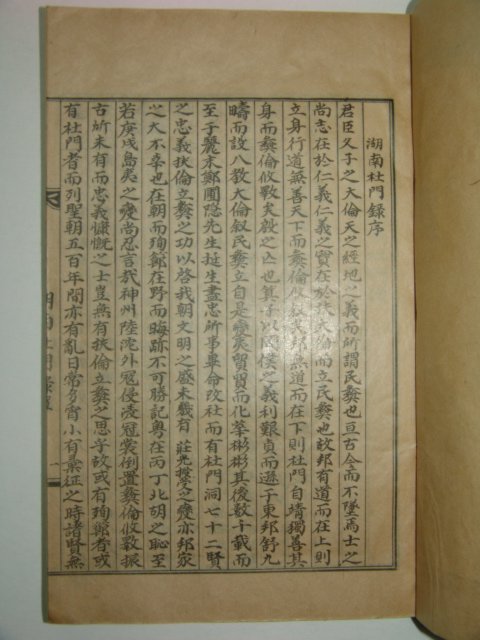 湖南杜門錄序
君臣父子之大倫天之經地之義而所謂民彝也亘古今而不墜焉士之
尚志在於仁義仁義之實在於扶大倫而立民彝也故邦有道而在上則
立身行道兼善天下而彝倫攸叙邦無道而在下則杜門自靖獨善其
身而彝倫攸斁矣殷之亡也箕子以罔僕之義利艱貞而遜于東邦舒九
疇而設八敎大倫叙民彝立自是變夷貿貿而化莘彬彬其後數千載而
至于麗末鄭圃隱先生挺生盡忠所事畢命改社而有杜門洞七十二賢
之忠義扶倫立彝之功以啓我朝文明之盛未幾有 莊光
之變亦邦家
之大不幸也在朝而殉節在野而晦跡不可勝記粤在丙丁北胡之恥至
若庚戌島夷之變尚忍言哉神州陸沈外冠侵凌冠裳倒置彝倫攸斁振
古所未有而忠義慷慨之士豈無有扶倫立彝之思乎故或有殉節者或
有杜門者而列聖朝五百年間亦有亂日常多宵小有棄征之時諸賢無
湖南杜門錄序
一